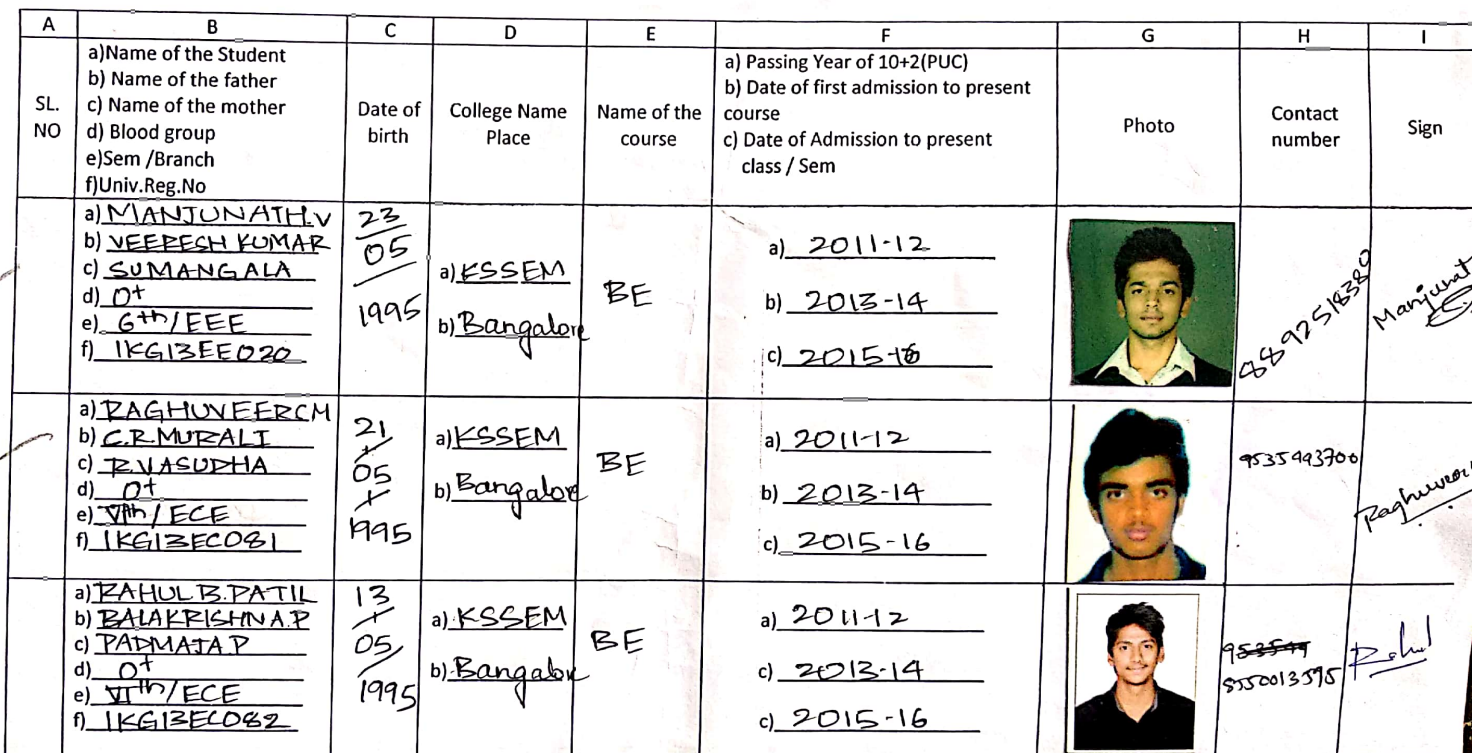 A B C D E F G H I
SL. NO
a)Name of the Student
b) Name of the father
c) Name of the mother
d) Blood group
e)Sem /Branch
f)Univ.Reg.No
Date of
birth
College Name
Place
Name of the
course
a) Passing Year of 10+2(PUC)
b) Date of first admission to present
course
c) Date of Admission to present
class / Sem
Photo
Contact
number
Sign
a) MANJUNATH.V
b) VEERESH KUMAR
c) SUMANGALA
d) O+
e) 6th/EEE
f) 1KG13EE020
23
05
1995
a) KSSEM
b) Bangalore
BE
a) 2011-12
b) 2013-14
c) 2015-16
8892518380
Manjunat
a) RAGHUVEER CM
b) C.R.MURALI
c) R.VASUDHA
d) O+
e) VIth/ECE
f) 1KG13EC081
21
05
1995
a) KSSEM
b) Bangalore
BE
a) 2011-12
b) 2013-14
c) 2015-16
9535493700
Raghuveer
a) RAHUL.B.PATIL
b) BALAKRISHNA.P
c) PADMAJA.P
d) O+
e) VIth/ECE
f) 1KG13EC082
13
05
1995
a) KSSEM
b) Bangalore
BE
a) 2011-12
c) 2013-14
c) 2015-16
8550013595
Rahul